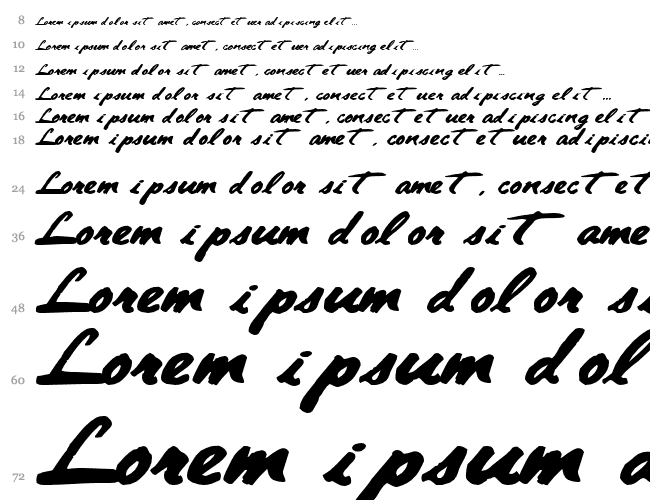 8 Lorem ipsum dolor sit amet, consect et uer adipiscing elit ...
10 Lorem ipsum dolor sit amet, consect et uer adipiscing elit ...
12 Lorem ipsum dolor sit amet, consect et uer adipiscing elit ...
14 Lorem ipsum dolor sit amet, consect et uer adipiscing elit ...
16 Lorem ipsum dolor sit amet, consect et uer adipiscing elit
18 Lorem ipsum dolor sit amet, consect et uer adipisci
24 Lorem ipsum dolor sit amet, consect et
36 Lorem ipsum dolor sit ame
48 Lorem ipsum dolor si
60 Lorem ipsum dol
72 Lorem ipsum